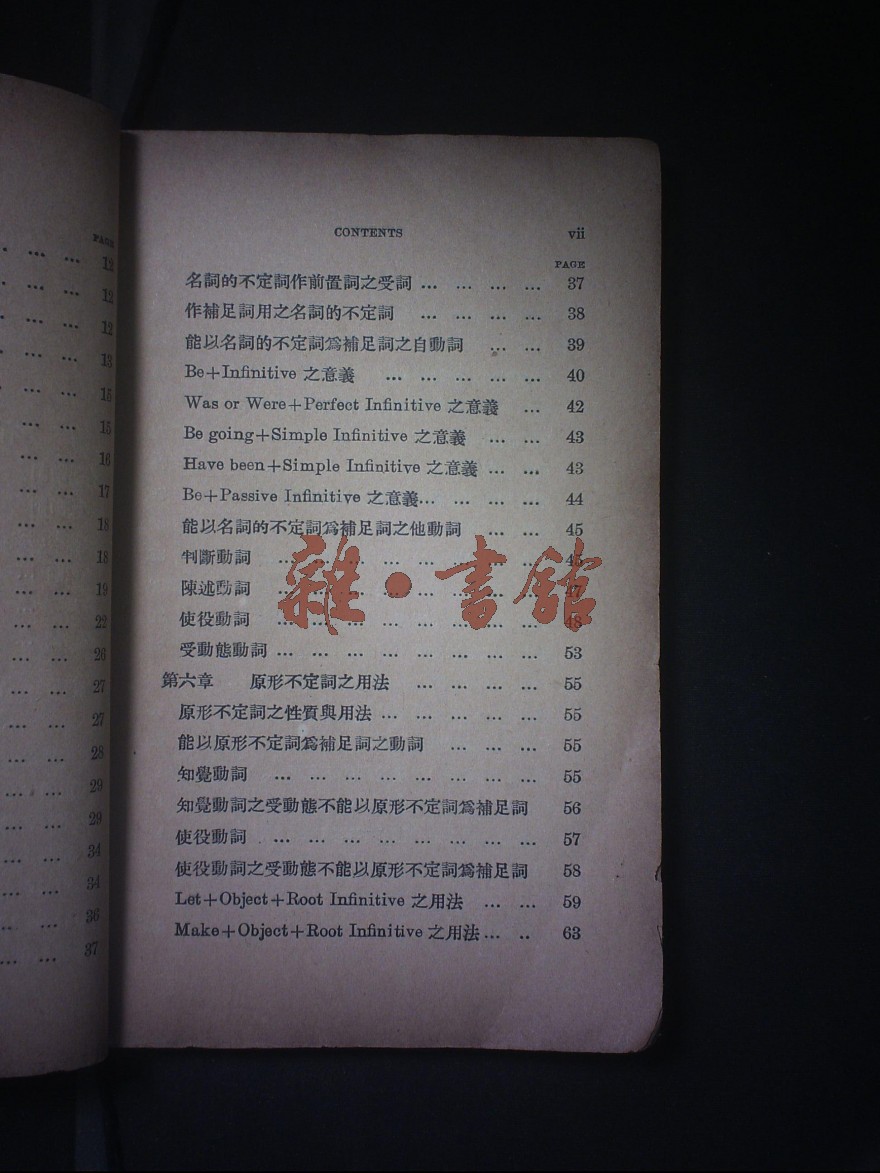 PAGE
... ... 12
... ... 12
... ... 12
... ... 13
... ... 15
... ... 15
... ... 16
... ... 17
... ... 18
... ... 18
... ... 19
... ... 22
... ... 26
... ... 27
... ... 27
... ... 28
... ... 29
... ... 29
... ... 34
... ... 34
... ... 36
... ... 37
CONTENTS vii
PAGE
名詞的不定詞作前置詞之受詞 ... ... ... ... 37
作補足詞用之名詞的不定詞 ... ... ... ... 38
能以名詞的不定詞爲補足詞之自動詞 ... ... 39
Be+Infinitive 之意義 ... ... ... ... ... 40
Was or Were+Perfect Infinitive 之意義 ... 42
Be going+Simple Infinitive 之意義 ... ... 43
Have been+Simple Infinitive 之意義 ... ... 43
Be+Passive Infinitive 之意義... ... ... ... 44
能以名詞的不定詞爲補足詞之他動詞 ... ... 45
判斷動詞 ... ... ... ... ... ... ... ... 45
陳述動詞 ... ... ... ... ... ... ... ... 47
使役動詞 ... ... ... ... ... ... ... ... 48
受動態動詞 ... ... ... ... ... ... ... ... 53
第六章 原形不定詞之用法 ... ... ... ... 55
原形不定詞之性質與用法 ... ... ... ... ... 55
能以原形不定詞爲補足詞之動詞 ... ... ... 55
知覺動詞 ... ... ... ... ... ... ... ... 55
知覺動詞之受動態不能以原形不定詞爲補足詞 56
使役動詞 ... ... ... ... ... ... ... ... 57
使役動詞之受動態不能以原形不定詞爲補足詞 58
Let+Object+Root Infinitive 之用法 ... ... 59
Make+Object+Root Infinitive 之用法 ... .. 63
雜·書館